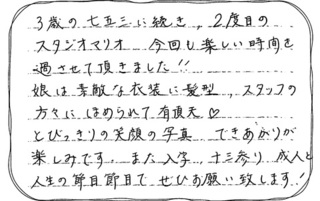 3歳の七五三に続き、2度目の
スタジオマリオ 今回も楽しい時間を
過させて頂きました!!
娘は素敵な衣装に髪型、スタッフの
方々にほめられて有頂天♡
とびっきりの笑顔の写真 できあがりが
楽しみです。また入学、十三参り、成人と
人生の節目節目でぜひお願い致します!